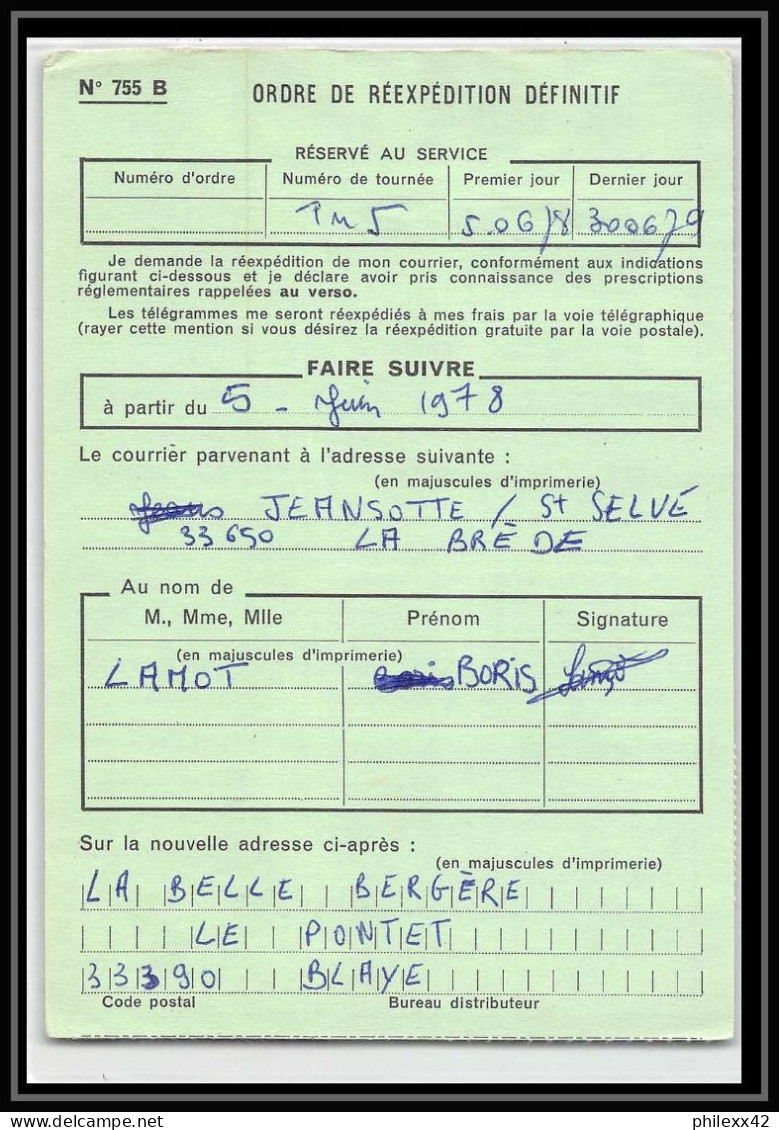 N° 755 B ORDRE DE RÉEXPÉDITION DÉFINITIF
RÉSERVÉ AU SERVICE
Numéro d'ordre Numéro de tournée Premier jour Dernier jour
5.0678 300679
Je demande la réexpédition de mon courrier, conformément aux indications
figurant ci-dessous et je déclare avoir pris connaissance des prescriptions
réglementaires rappelées au verso.
Les télégrammes me seront réexpédiés à mes frais par la voie télégraphique
(rayer cette mention si vous désirez la réexpédition gratuite par la voie postale).
FAIRE SUIVRE
à partir du 5 - Juin 1978
Le courrier parvenant à l'adresse suivante :
(en majuscules d'imprimerie)
JEANSOTTE / St SELVE
33650 LA BRÈDE
Au nom de
M., Mme, Mlle Prénom Signature
(en majuscules d'imprimerie)
LAMOT BORIS
Sur la nouvelle adresse ci-après :
(en majuscules d'imprimerie)
LA BELLE BERGÈRE
LE PONTET
33390 BLAYE
Code postal Bureau distributeur
philexx42